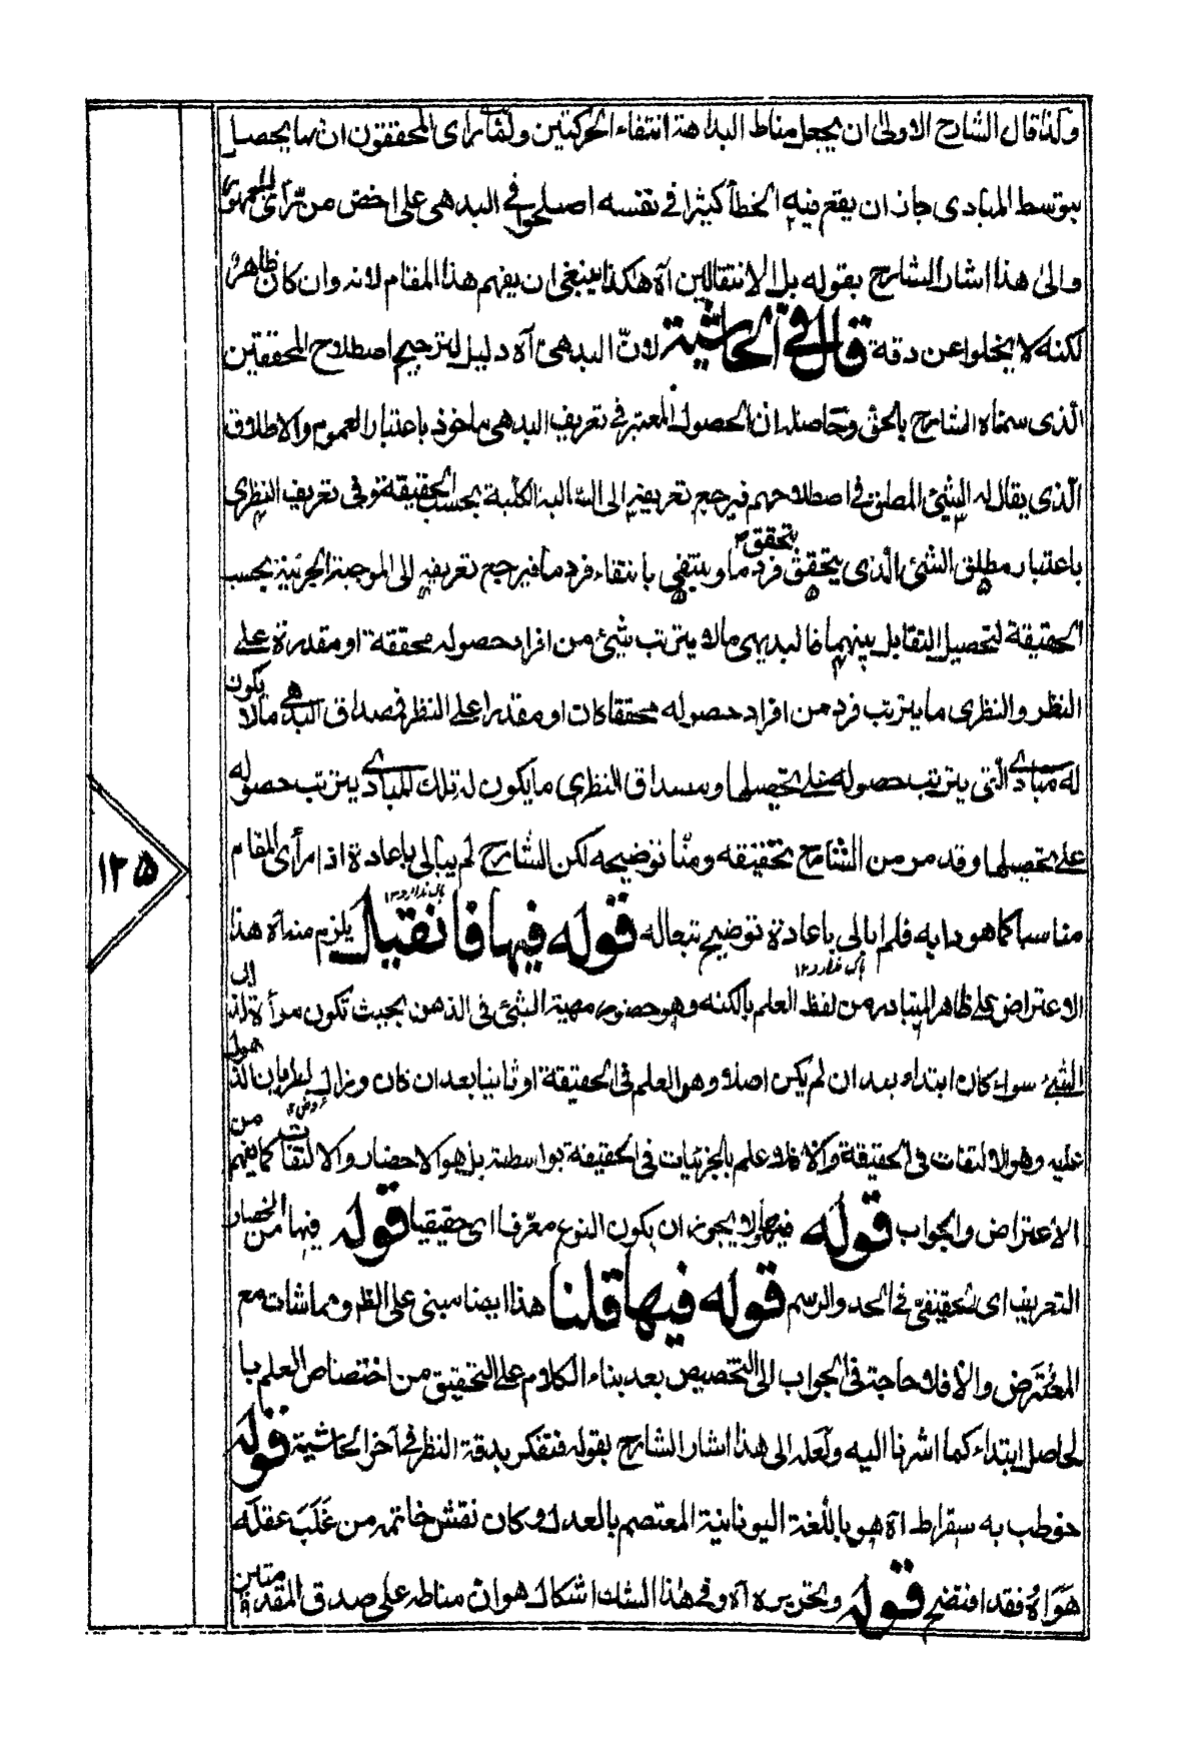 ولذا قال الشارح الاولى ان يجعل مناط البداهة انتفاء الحركتين ولما رأى المحققون ان ما يحصل
بتوسط المبادى جاز ان يقع فيه الخطأ كثيرا فى نفسه اصطلحوا فى البدهى على اخص من رأى الجمهور
والى هذا اشار الشارح بقوله بل الانتقالين آه هكذا ينبغى ان يفهم هذا المقام لانه وان كان ظاهرا
لكنه لا يخلوا عن دقة قال فى الحاشية لان البدهى آه دليل لترجيح اصطلاح المحققين
الذى سماه الشارح بالحق وحاصله ان الحصول المعتبر فى تعريف البدهى ماخوذ باعتبار العموم والاطلاق
الذى يقال له الشئ المطلق فى اصطلاحهم فيرجع تعريفه الى السالبة الكلية بحسب الحقيقة وفى تعريف النظرى
باعتبار مطلق الشئ الذى يتحقق بتحقق فرد ما وينتفى بانتفاء فرد ما فيرجع تعريفه الى الموجبة الجزئية بحسب
الحقيقة لتحصيل التقابل بينهما فالبديهى ما لا يترتب شئ من افراد حصوله محققة او مقدرة على
النظر والنظرى ما يترتب فرد من افراد حصوله محققا كان او مقدرا على النظر فمصداق البدهى ما لا يكون
له مبادى التى يترتب حصوله على تحصيلها ومصداق النظرى ما يكون له تلك المبادى يترتب حصوله
على تحصيلها وقد مر من الشارح تحقيقه ومنا توضيحه لكن الشارح لم يبالى باعادة اذا رأى المقام
مناسبا كما هو دابه فلم ابالى باعادة توضيح تبعا له قوله فيها فان قيل يلزم منه آه هذا
الاعتراض على ظاهر المتبادر من لفظ العلم بالكنه وهو حضور مهية الشئ فى الذهن بحيث تكون مرأة لذلك
الشئ سواء كان ابتداء بعد ان لم يكن اصلا وهو العلم فى الحقيقة او ثانيا بعد ان كان وزال لطريان الذهول
عليه وهو الالتفات فى الحقيقة والا فلا علم بالجزئيات فى الحقيقة بواسطته بل هو الاحضار والالتفات كما يفهم من
الاعتراض والجواب قوله فيها ولا يجوز ان يكون النوع معرفا اى حقيقيا قوله فيها من انحصار
التعريف اى الحقيقى فى الحد والرسم قوله فيها قلنا هذا ايضا مبنى على الظ ومماشات مع
المعترض والا فلا حاجة فى الجواب الى التخصيص بعد بناء الكلام على التحقيق من اختصاص العلم با
لحاصل ابتداء كما اشرنا اليه ولعله الى هذا اشار الشارح بقوله فتفكر بدقة النظر فى آخر الحاشية قوله
خوطب به سقراط آه هو باللغة اليونانية المعتصم بالعدل وكان نقش خاتمه من غلب عقله
هواه فقد افتضح قوله وتحريره آه وفى هذا الشك اشكال هو ان مناطه على صدق المقدمتين
١٢٥